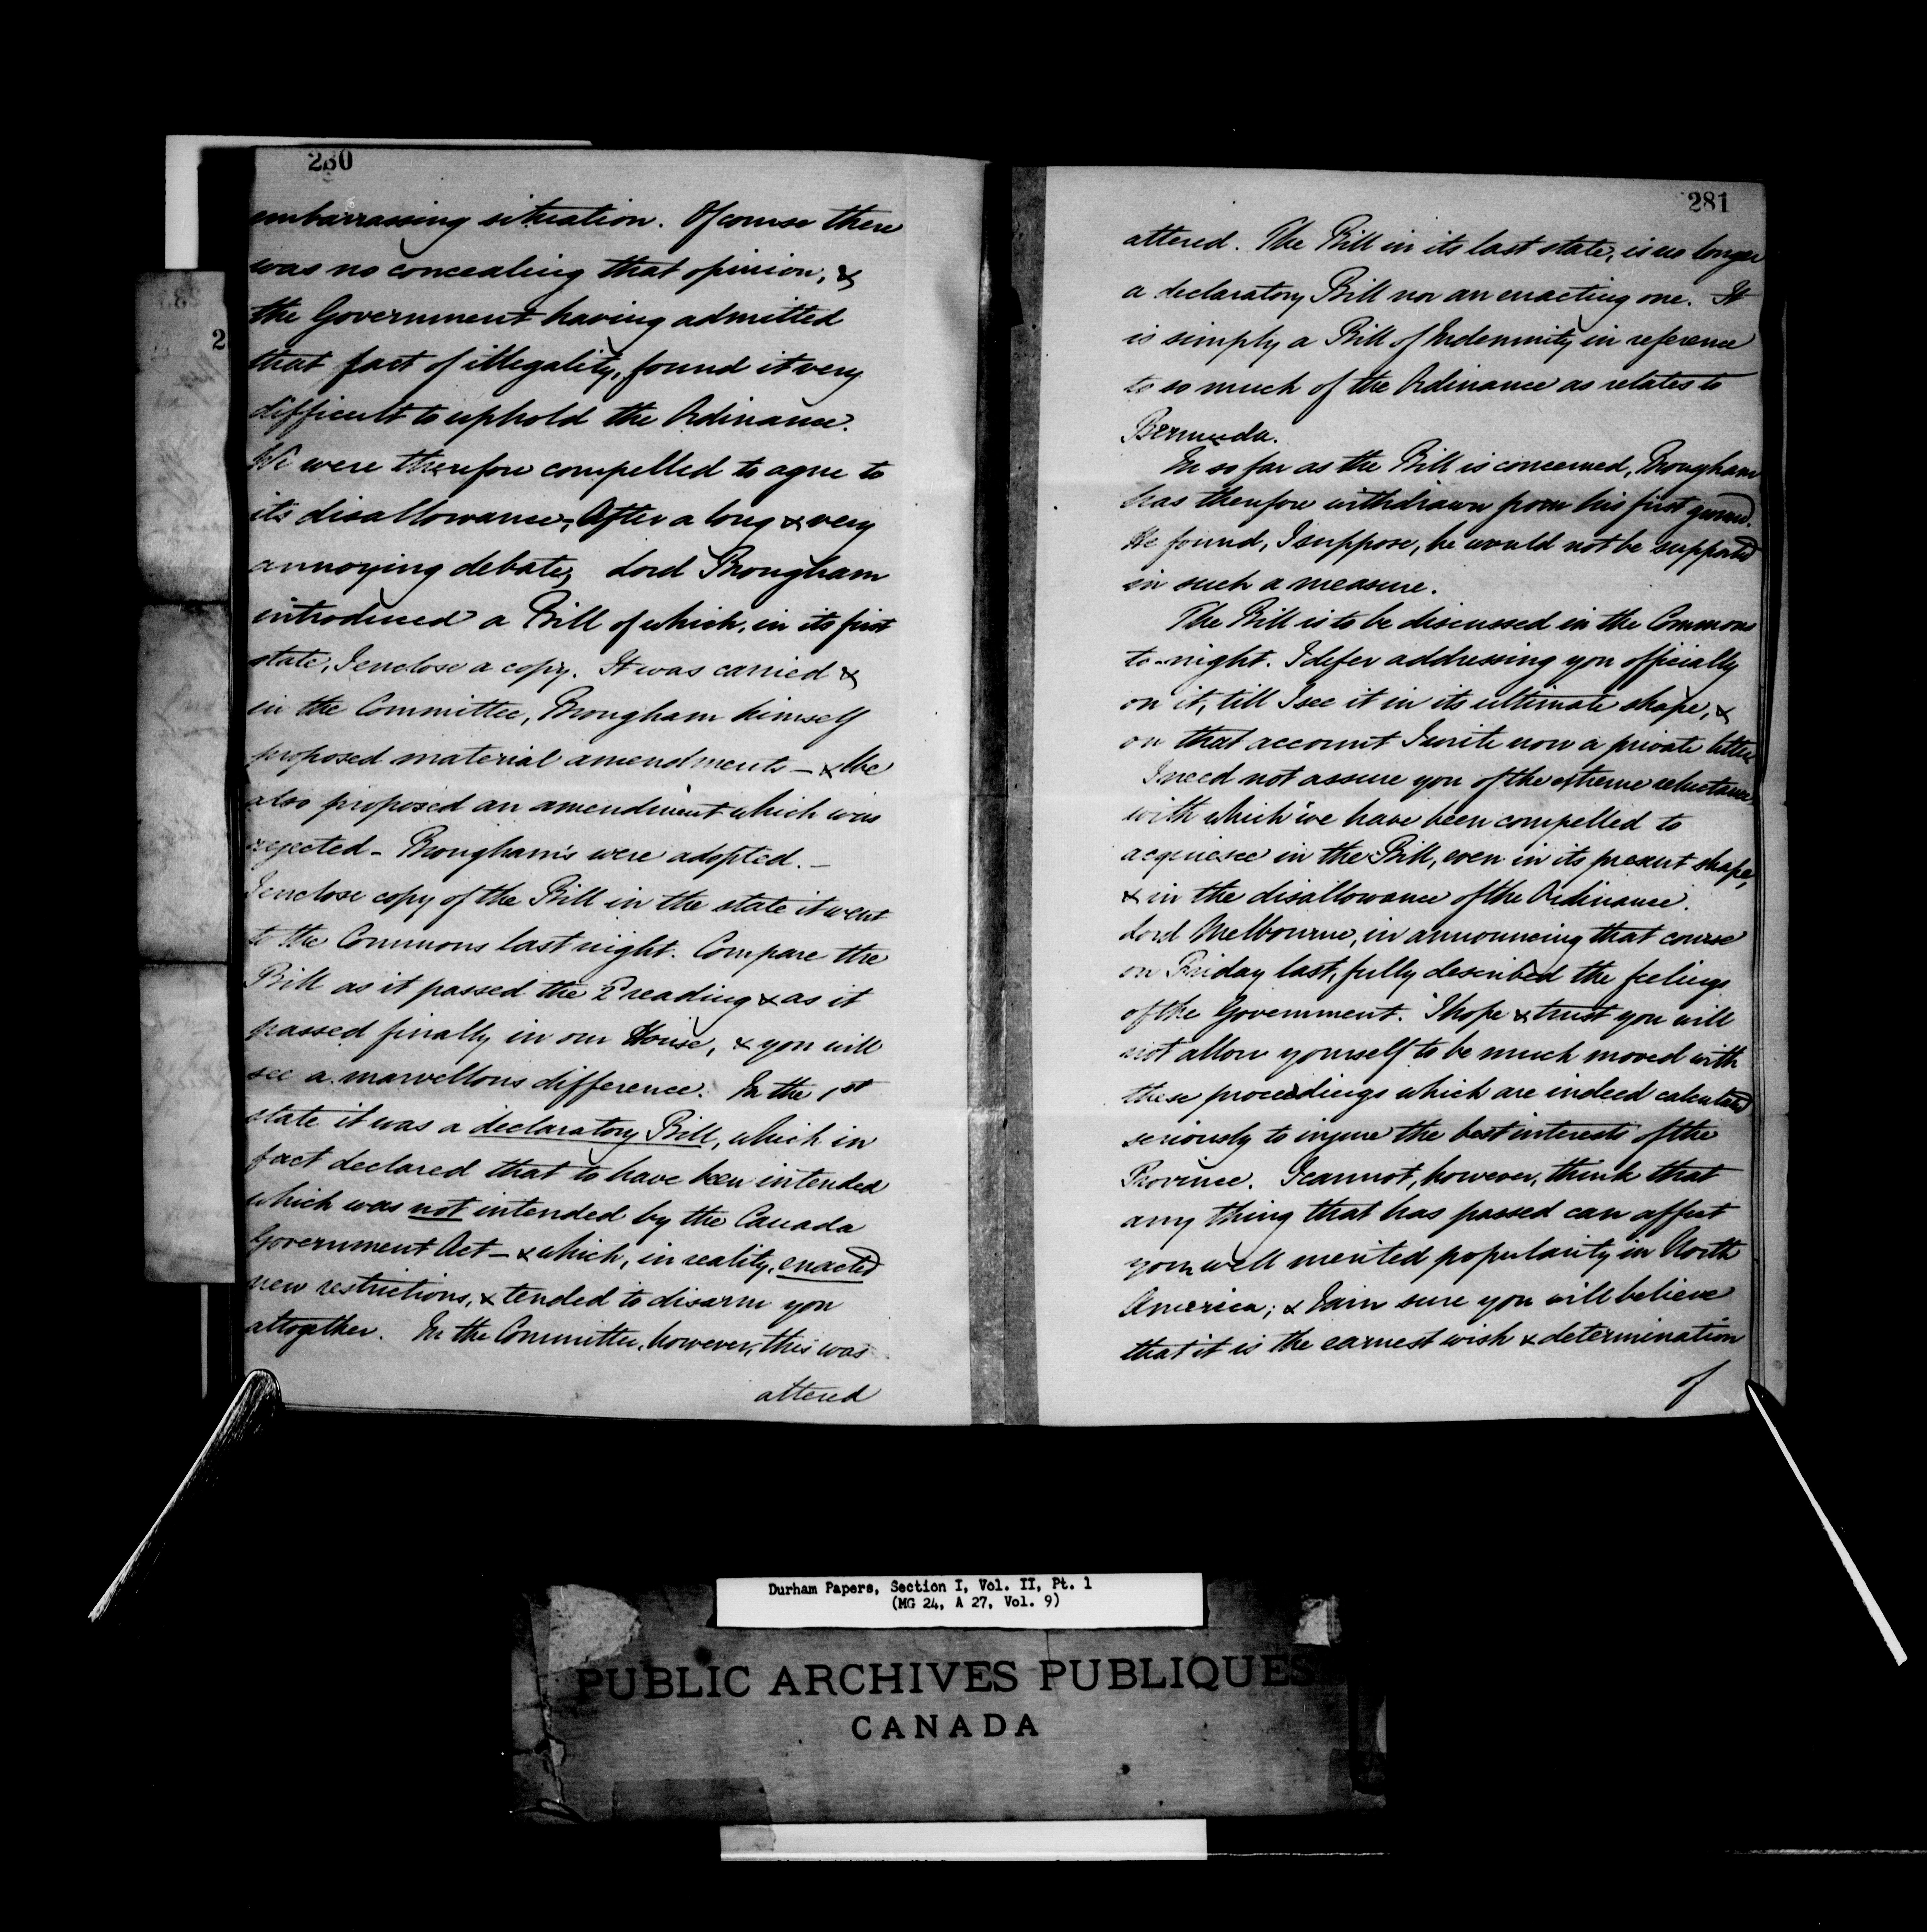 280
embarrassing situation. Of course there
was no concealing that opinion, &
the Government having admitted
that fact of illegality, found it very
difficult to uphold the Ordinance.
We were therefore compelled to agree to
its disallowance; After a long & very
annoying debate, Lord Brougham
introduced a Bill of which, in its first
state, I enclose a copy. It was carried &
in the Committee, Brougham himself
proposed material amendments - & We
also proposed an amendment which was
rejected - Brougham's were adopted. -
I enclose copy of the Bill in the state it went
to the Commons last night. Compare the
Bill as it passed the 2d reading & as it
passed finally in our House, & you will
see a marvellous difference. In the 1st
state it was a declaratory Bill, which in
fact declared that to have been intended
which was not intended by the Canada
Government Act - & which, in reality, enacted
new restrictions, & tended to disarm you
altogether. In the Committee, however, this was
altered
281
altered. The Bill in its last state, is no longer
a declaratory Bill nor an enacting one. It
is simply a Bill of Indemnity in reference
to so much of the Ordinance as relates to
Bermuda.
In so far as the Bill is concerned, Brougham
has therefore withdrawn from his first ground.
He found, I suppose, he would not be supported
in such a measure.
The Bill is to be discussed in the Commons
to-night. I defer addressing you officially
on it, till I see it in its ultimate shape, &
on that account I write now a private letter
I need not assure you of the extreme reluctance
with which we have been compelled to
acquiesce in the Bill, even in its present shape,
& in the disallowance of the Ordinance.
Lord Melbourne, in announcing that course
on Friday last, fully described the feelings
of the Government. I hope & trust you will
not allow yourself to be much moved with
these proceedings which are indeed calculated
seriously to injure the best interests of the
Province. I cannot, however, think that
any thing that has passed can affect
your well merited popularity in North
America; & I am sure you will believe
that it is the earnest wish & determination
of
2
Durham Papers, Section I, Vol. II, Pt. 1
(MG 24, A 27, Vol. 9)
PUBLIC ARCHIVES PUBLIQUES
CANADA